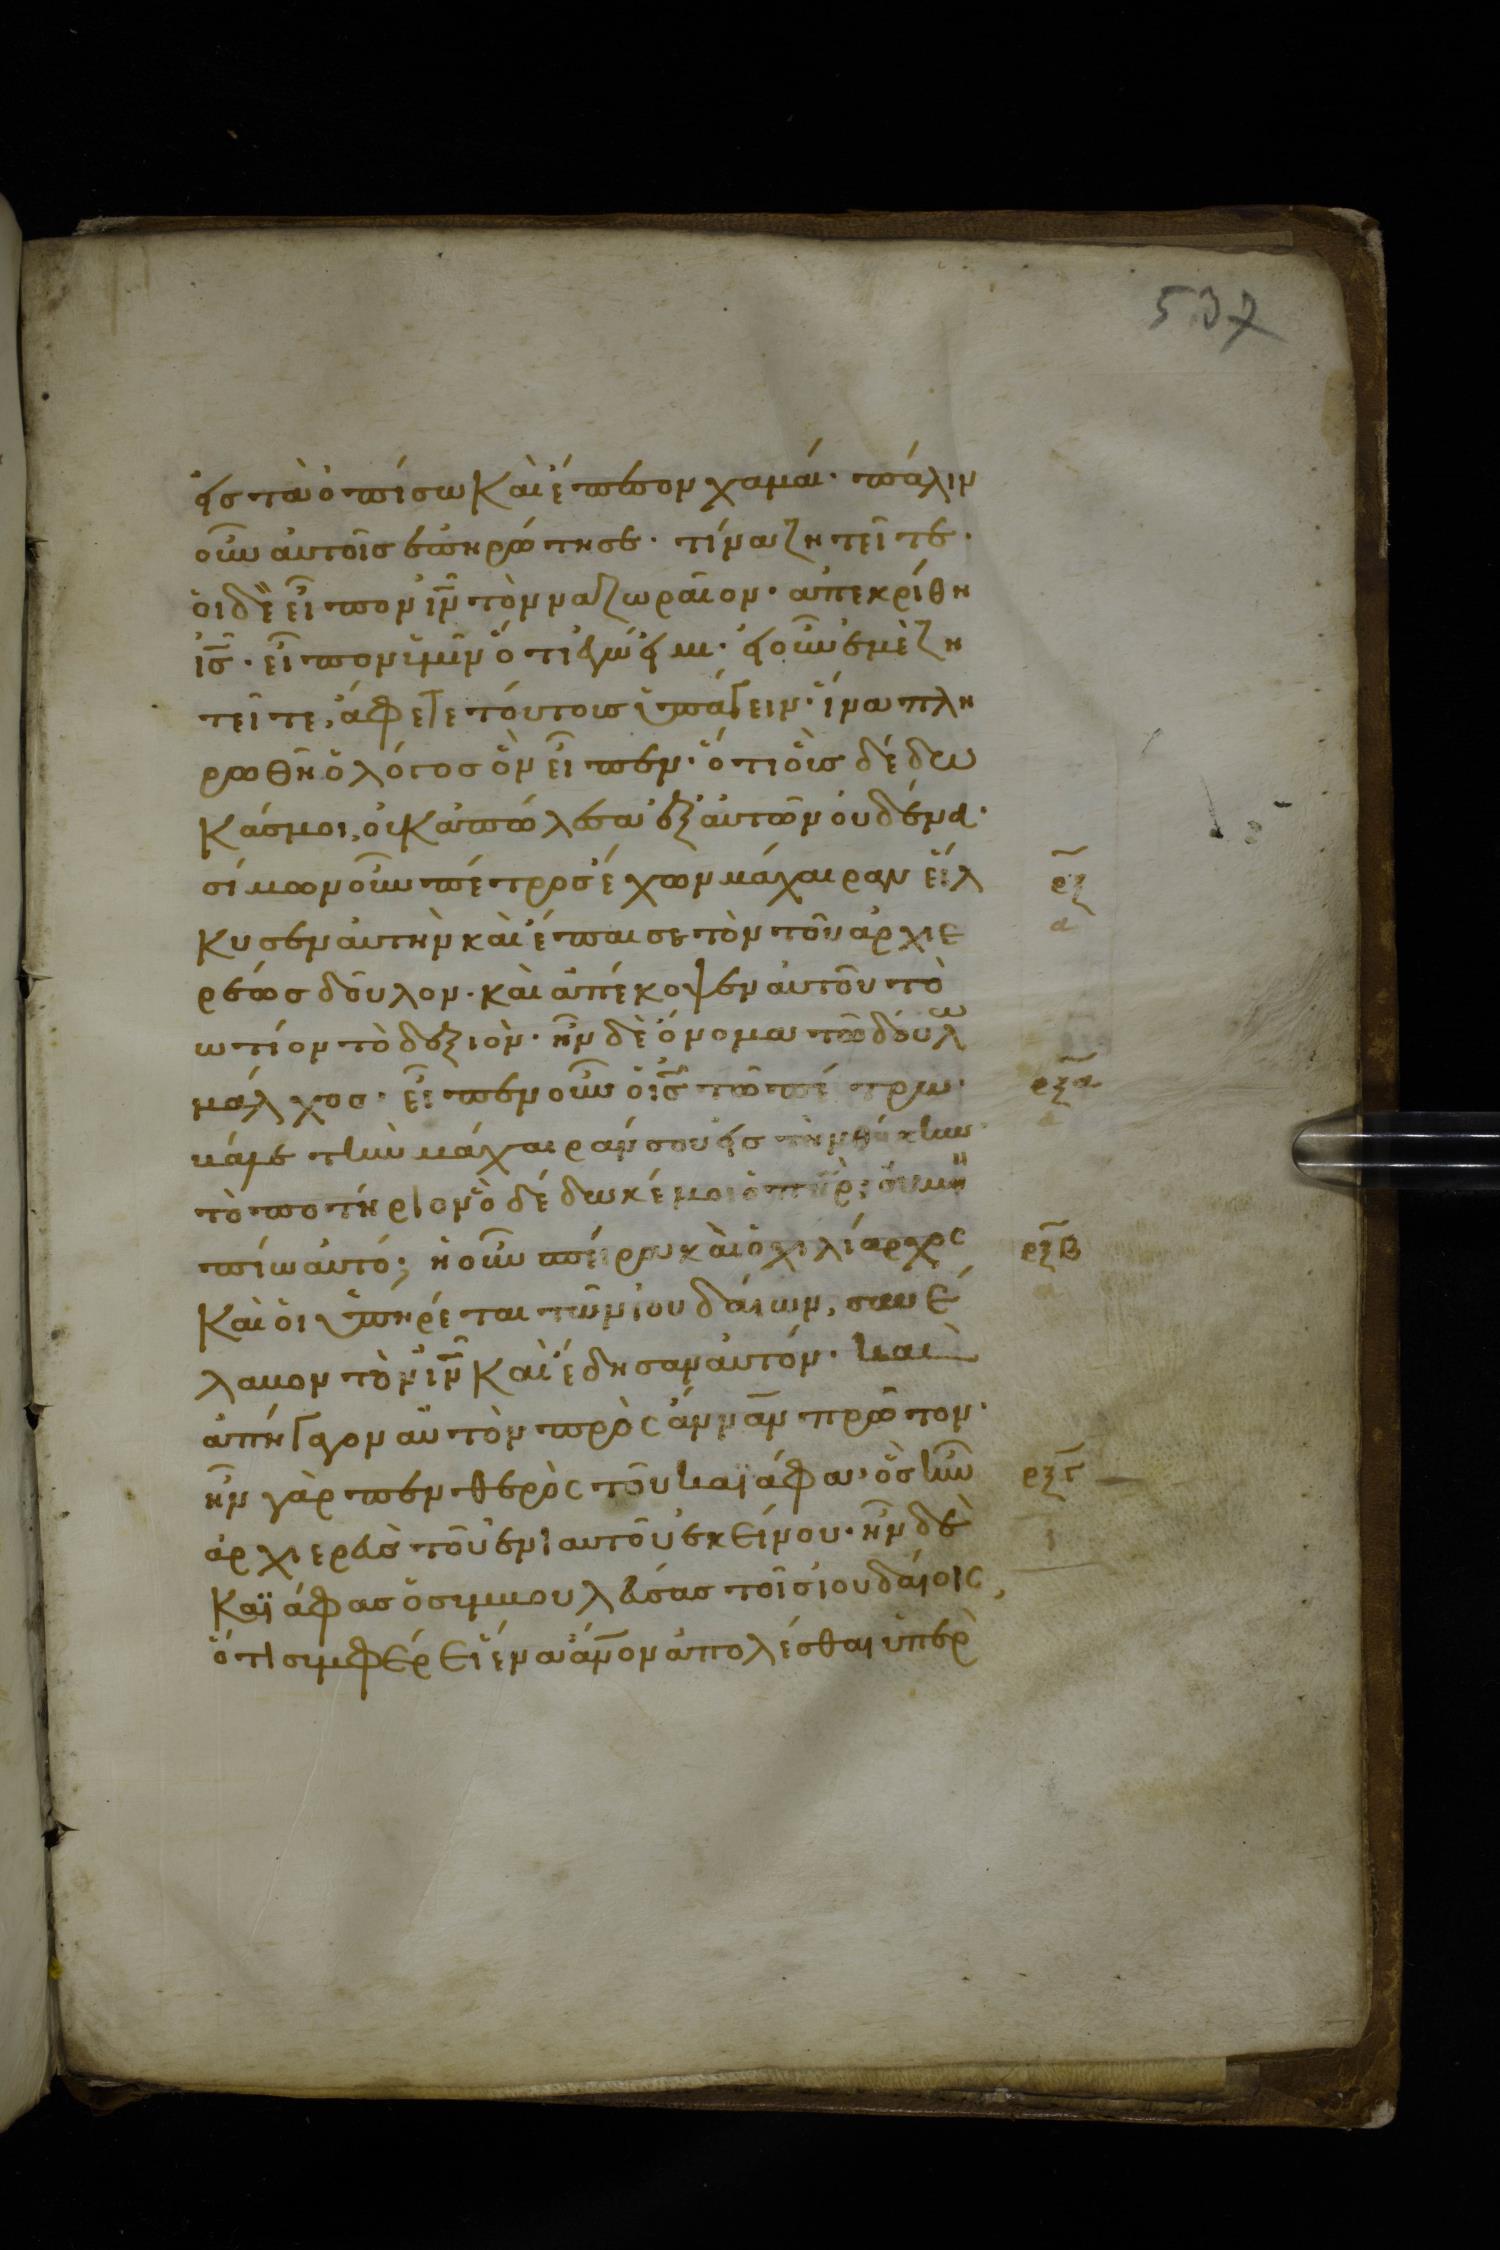 537
εἰς τὰ ὀπίσω καὶ ἔπεσον χαμαί· πάλιν
οὖν αὐτοῖς ἐπηρώτησε· τίνα ζητεῖτε·
οἱ δὲ εἶπον ἰν̅ τὸν ναζωραῖον· ἀπεκρίθη
ἰς̅· εἶπον ὑμῖν ὅτι ἐγώ εἰμι· εἰ οὖν ἐμὲ ζη
τεῖτε, ἄφετε τούτους ὑπάγειν· ἵνα πλη
ρωθῆ ὁ λόγος ὃν εἶπεν· ὅτι οὓς δέδω
κάς μοι, οὐκ ἀπώλεσα ἐξ αὐτῶν οὐδένα·
σίμων οὖν πέτρος ἔχων μάχαιραν εἵλ
ρξ̅
κυσεν αὐτὴν καὶ ἔπαισε τὸν τοῦ ἀρχιε
α
ρέως δοῦλον· καὶ ἀπέκοψεν αὐτοῦ τὸ
ωτίον τὸ δεξιὸν· ἦν δὲ ὄνομα τῶ δούλω
μάλχος· εἶπεν οὖν ὁ ις̅ τῶ πέτρω·
ρξα̅
α
βάλε τὴν μάχαιράν σου εἰς τὴν θήκην·
τὸ ποτήριον ὃ δέδωκέ μοι ὁ πηρ̅, οὐ μὴ
πίω αὐτό; ἡ οὖν σπεῖρα καὶ ὁ χιλίαρχος
ρξ̅β
καὶ οἱ ὑπηρέται τῶν ἰουδαίων, συνέ
α
λαβον τὸν ἰν̅ καὶ ἔδησαν αὐτόν· καὶ
ἀπήγαγον αὐτὸν πρὸς ἄνναν πρῶτον·
ἦν γὰρ πενθερὸς τοῦ καϊάφα· ὃς ἦν
ρξγ̅
ἀρχιερεὺς τοῦ ἐνιαυτοῦ ἐκείνου· ἦν δὲ
ι
καϊάφας ὁ συμβουλεύσας τοῖς ἰουδαίοις,
ὅτι συμφέρει ἕνα ἄνο̅ν ἀπολέσθαι ὑπὲρ